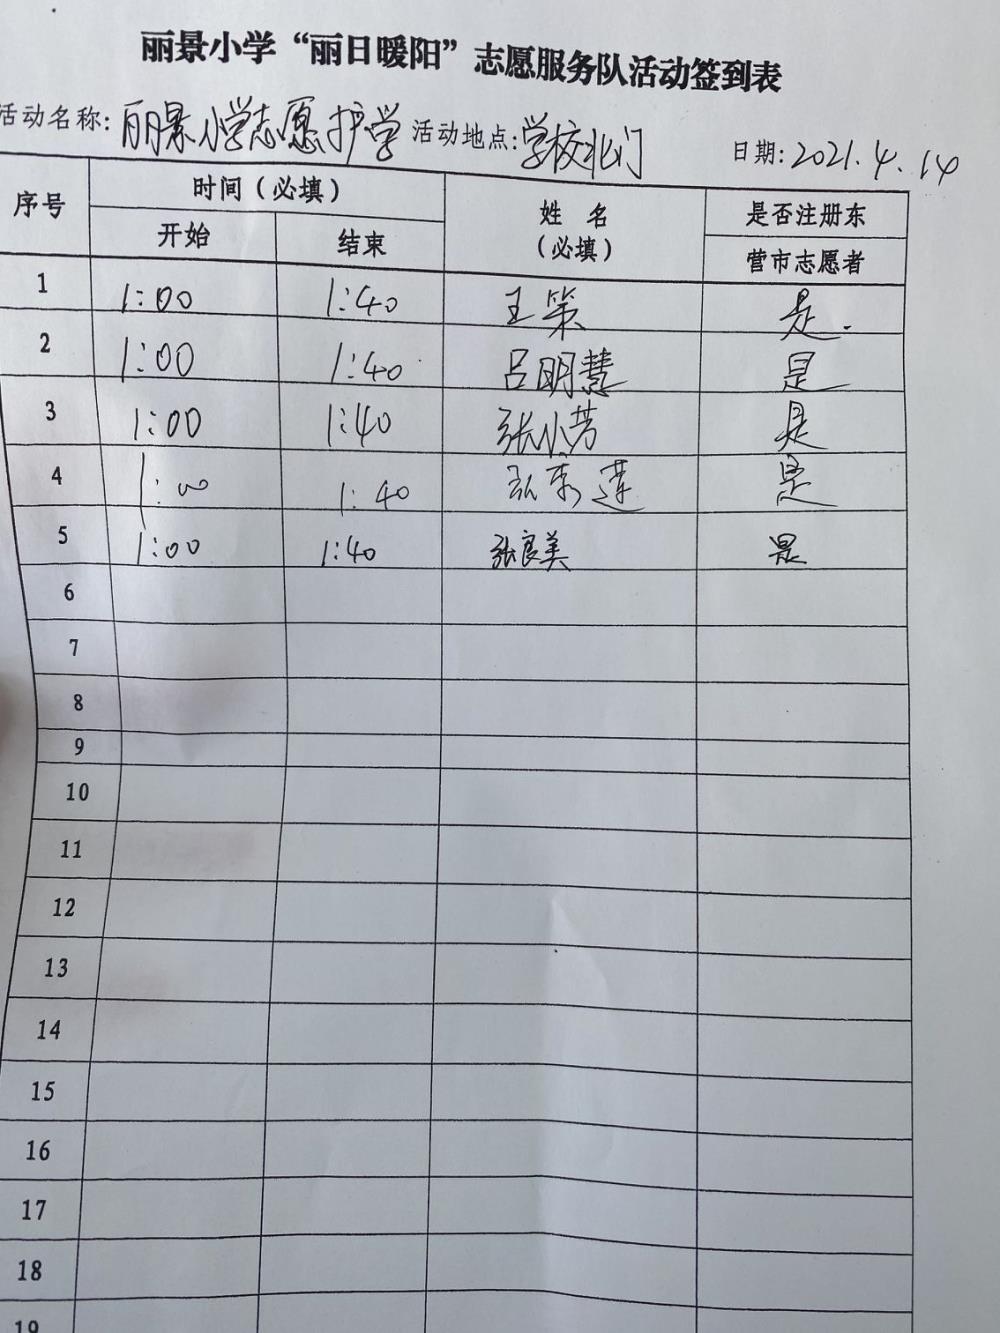 丽景小学“丽日暖阳”志愿服务队活动签到表
活动名称: 丽景小学志愿护学 活动地点: 学校北门 日期: 2021.4.14
序号 时间(必填) 姓名(必填) 是否注册东营市志愿者
开始 结束
1 1:00 1:40 王策 是.
2 1:00 1:40 吕明慧 是
3 1:00 1:40 张小芳 是
4 1:00 1:40 是
5 1:00 1:40 张良美 是
6
7
8
9
10
11
12
13
14
15
16
17
18
19